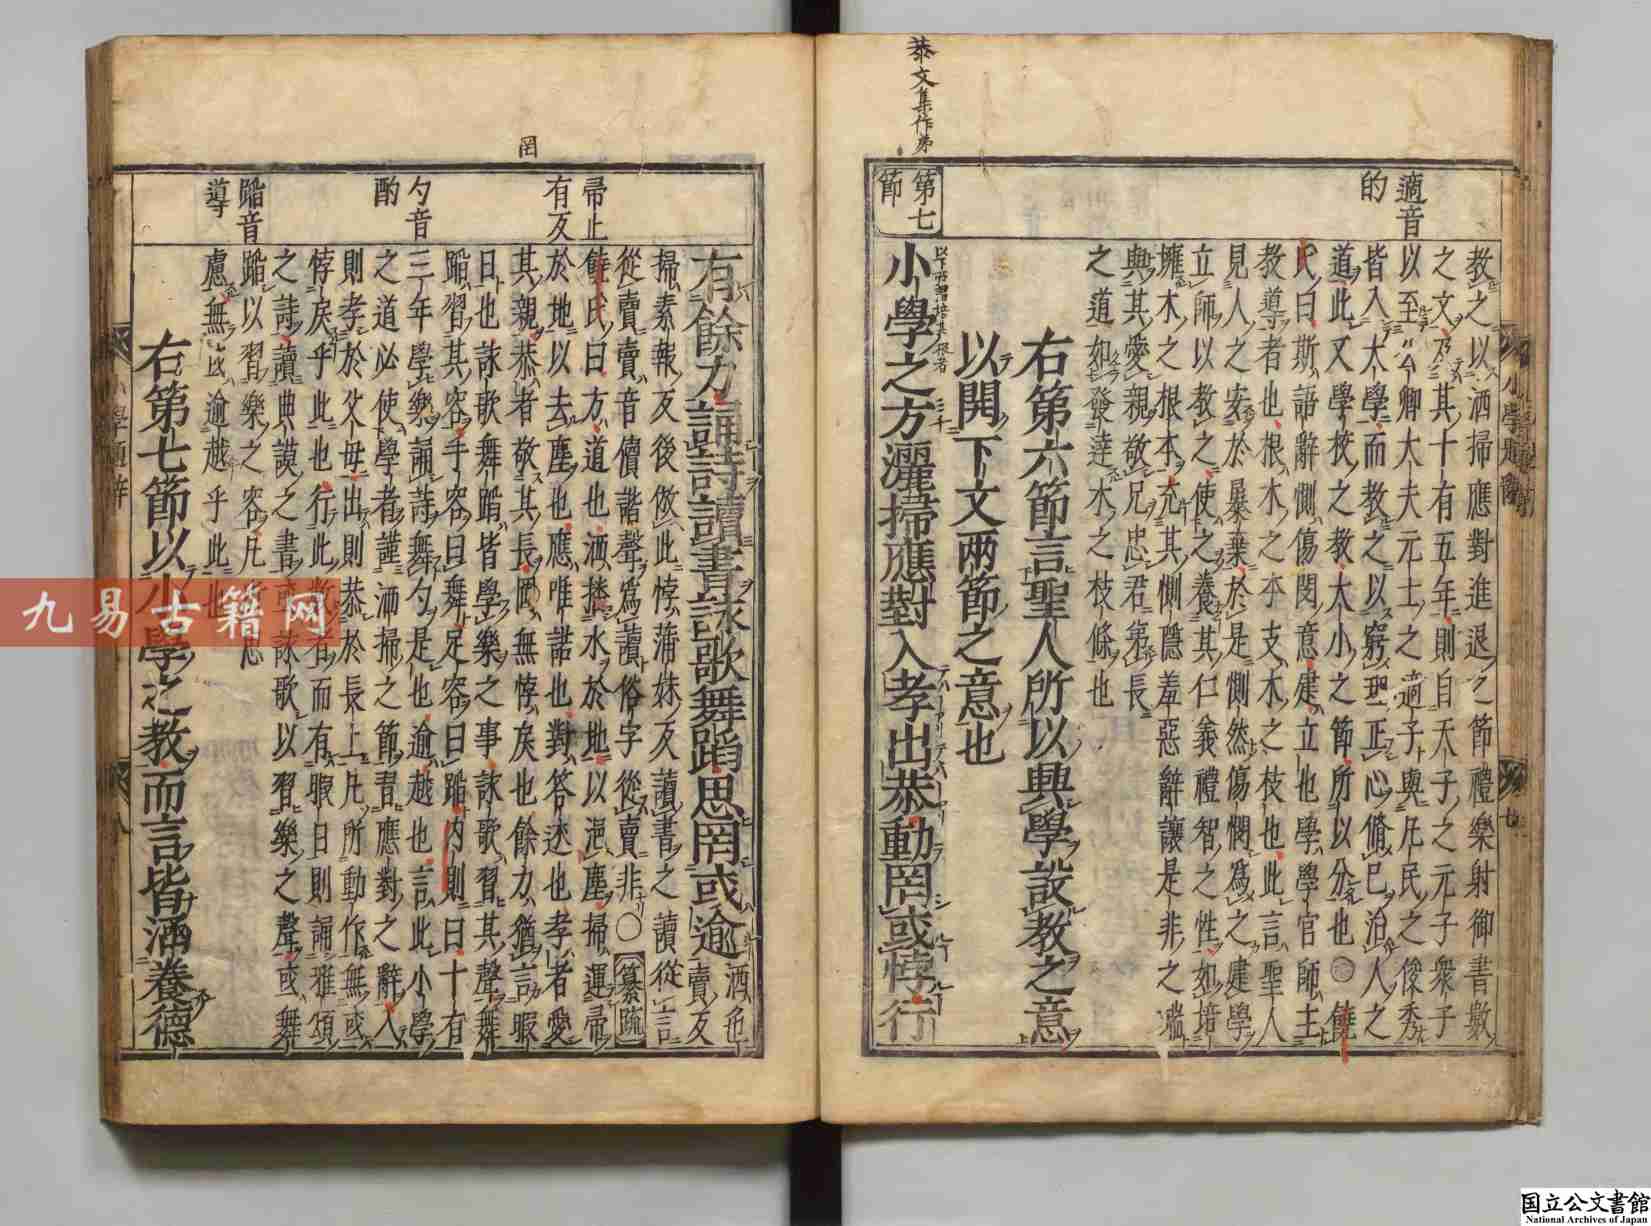 恭文集作弟
適音
的
教之以洒掃應對進退之節禮樂射御書數
之文乃其十有五年則自天子之元子衆子
以至公卿大夫元士之適子與凡民之俊秀
皆入大學而教之以窮理正心脩己治人之
道此又學校之教大小之節所以分也 饒
氏曰斯語辭惻傷閔意建立也學學官師主
教導者也根木之本支木之枝也此言聖人
見人之安於暴棄於是惻然傷憫爲之建學
立師以教之使之養其仁義禮智之性如培
壅木之根本充其惻隱羞惡辭讓是非之端
與其愛親敬兄忠君弟長
之道如發達木之枝條也
右第六節言聖人所以興學設教之意
以開下文兩節之意也
第七
節
小學之方灑掃應對入孝出恭動罔或悖行
小學題辭
七
罔
有餘力誦詩讀書詠歌舞蹈思罔或逾
洒色
賣反
掃素報反後倣此悖蒲妹反讀書之讀從言
從賣賣音價諧聲爲讀俗字從賣非○纂疏
帚止
有反
饒氏曰方道也洒播水於地以浥塵掃運帚
於地以去塵也應唯諾也對答述也孝者愛
其親恭者敬其長罔無悖戾也餘力猶言暇
日也詠歌舞蹈皆學樂之事詠歌習其聲舞
蹈習其容手容曰舞足容曰蹈內則曰十有
勺音
酌
三年學樂誦詩舞勺是也逾越也言此小學
之道必使學者謹洒掃之節習應對之辭入
則孝於父母出則恭於長上凡所動作無或
悖戾乎此也行此數者而有暇日則誦雅頌
之詩讀典謨之書或詠歌以習樂之聲或舞
蹈音
導
蹈以習樂之容凡
慮無或逾越乎此也
右第七節以小學之教而言皆涵養德
小學題辭
八
九易古籍网
国立公文書館
National Archives of Japan